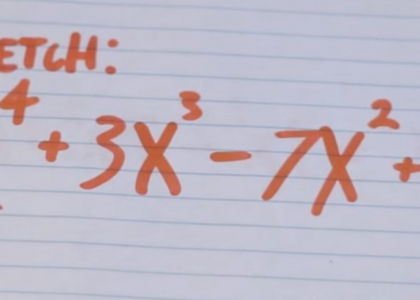 ETCH:
4 + 3x³ - 7x² +